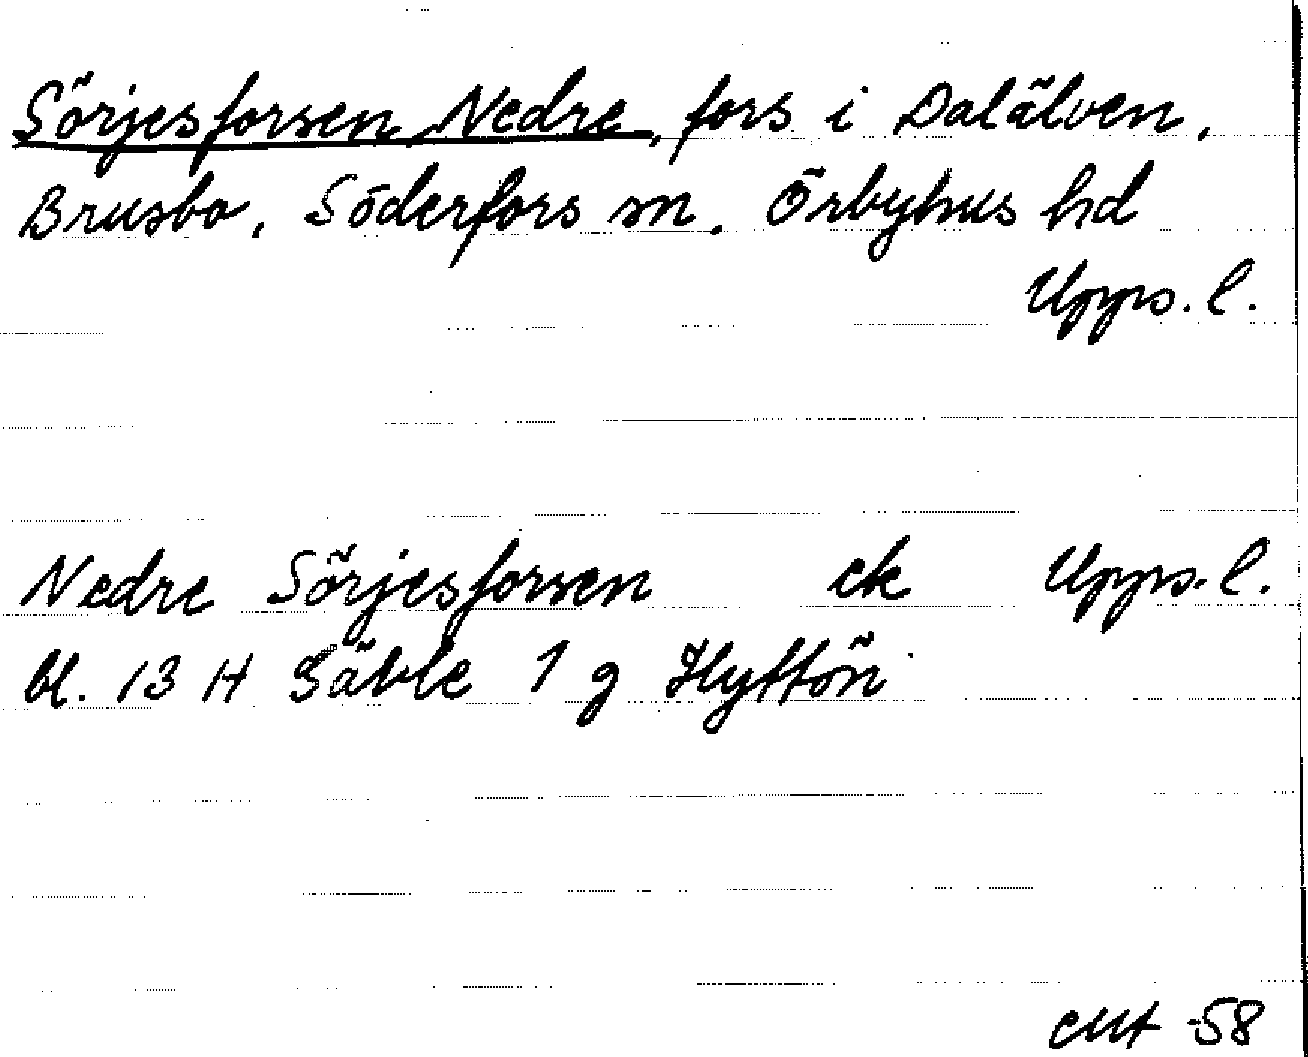 Sörjesforsen, Nedre, fors i Dalälven,
Brusbo, Söderfors sn. Örbyhus hd
Upps. l.
Nedre Sörjesforsen ek Upps. l.
bl. 13 H Gävle 1 g Hyttön
-58